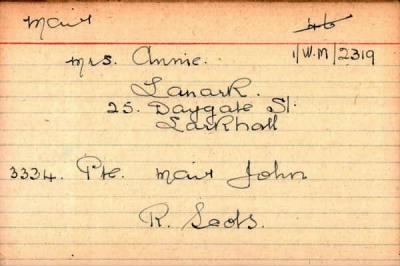 Mair 46
1/W.M/2319
Mrs. Annie.
Lanark.
25. Daygate St.
Larkhall
3334. Pte. Mair John
R. Scots.